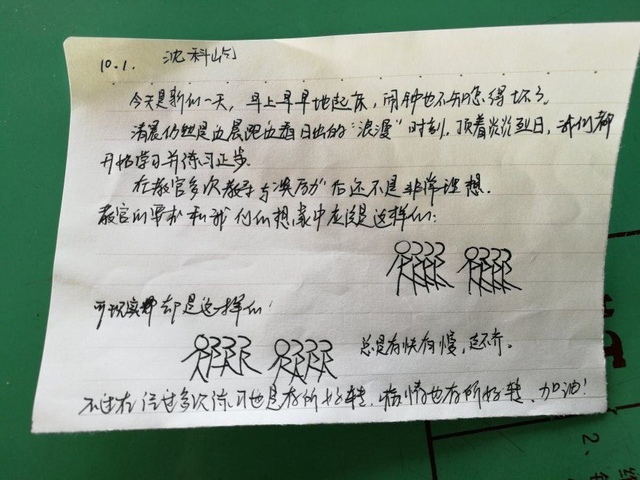 10.1. 沈科屿
今天是新的一天，早上早早地起床，闹钟也不知怎得坏了。
清晨仍然是边晨跑边看日出的“浪漫”时刻，顶着炎炎烈日，我们都
开始学习并练习正步。
在教官多次教导与“奖励”后还不是非常理想。
教官的要求和我们的想象中应该是这样的：
可现实却是这样的！
总是有快有慢，走不齐。
不过在经过多次练习也是有所好转，病情也有所好转，加油！
2、